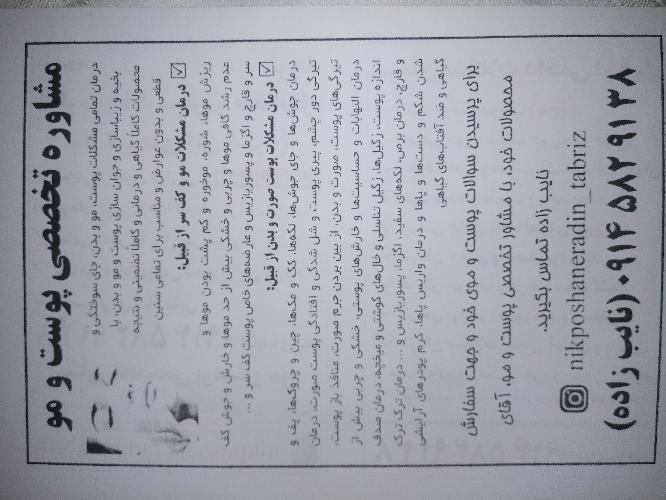 مشاوره تخصصی پوست و مو
درمان تمامی مشکلات پوست، مو و بدن، جای سوختگی و
بخیه و زیباسازی و جوان سازی پوست و مو و بدن، با
محصولات کاملا گیاهی و درمانی و کاملا تضمینی و نتیجه
قطعی و بدون عوارض و مناسب برای تمامی سنین
☑ درمان مشکلات مو و کف سر از قبیل:
ریزش موها، شوره، موخوره و کم پشت بودن موها و
عدم رشد کافی موها و چربی و خشکی بیش از حد موها و خارش و جوش کف
سر و قارچ و اگزما و پسوریازیس و عارضه‌های خاص پوست کف سر و ...
☑ درمان مشکلات پوست صورت و بدن از قبیل:
درمان جوش‌ها و جای جوش‌ها، لکه‌ها، کک و مک‌ها، چین و چروک‌ها، پف و
تیرگی دور چشم، پیری پوست و شل شدگی و افتادگی پوست صورت، درمان
تیرگی‌های پوست، صورت و بدن، از بین بردن جرم صورت، منافذ باز پوست،
درمان التهابات و حساسیت‌ها و خارش‌های پوستی، خشکی و چربی بیش از
اندازه پوست، زگیل‌ها، زگیل تناسلی و خال‌های گوشتی و میخچه، درمان صدف
و قارچ، درمان برص، لکه‌های سفید، اگزما، پسوریازیس و ... درمان ترک ترک
شدن شکم و دست‌ها و پاها و درمان واریس پاها، کرم پودرهای آرایشی
گیاهی و ضد آفتاب‌های گیاهی
برای پرسیدن سوالات پوست و موی خود و جهت سفارش
محصولات خود، با مشاور تخصصی پوست و مو، آقای
نایب زاده تماس بگیرید.
nikposhaneradin_tabriz
۰۹۱۴ ۵۸۲ ۹۱ ۳۸ (نایب زاده)